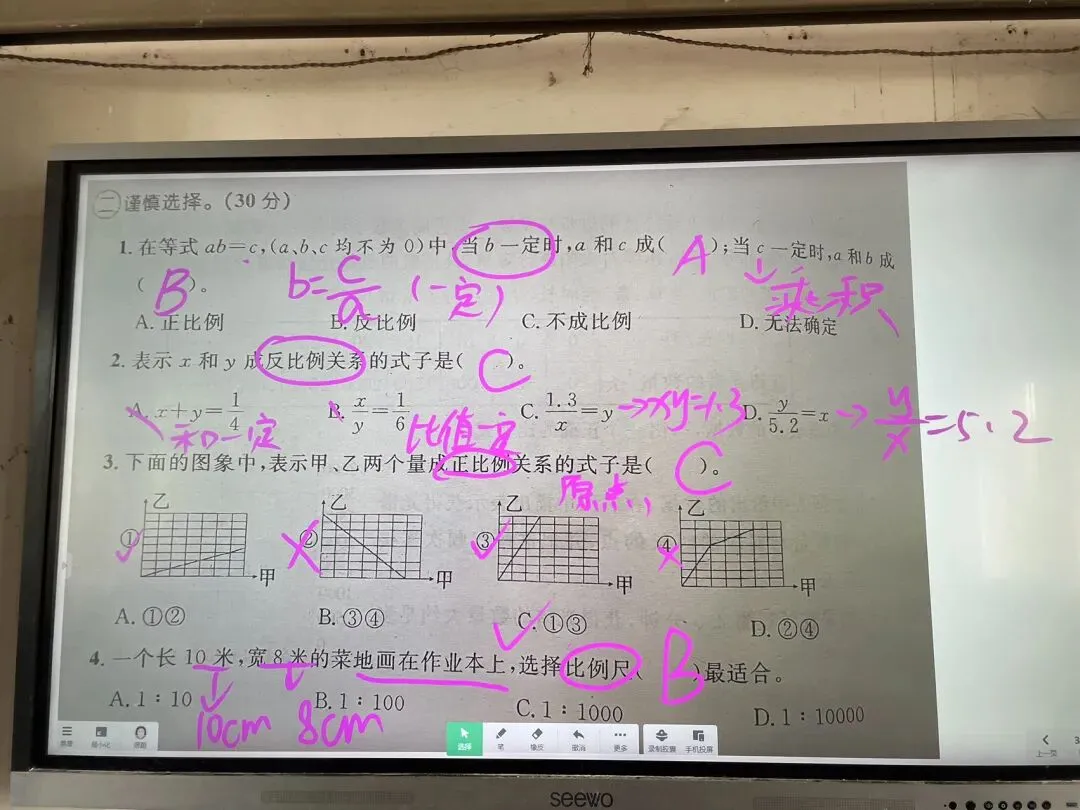 二 谨慎选择。(30 分)
1. 在等式 ab=c,(a、b、c 均不为 0)中,当 b 一定时,a 和 c 成( A );当 c 一定时,a 和 b 成
( B )。 b=c/a (一定) 乘积
A. 正比例 B. 反比例 C. 不成比例 D. 无法确定
2. 表示 x 和 y 成反比例关系的式子是( C )。
A. x+y=1/4 B. x/y=1/6 C. 1.3/x=y →xy=1.3 D. y/5.2=x → y/x=5.2
和一定 比值一定
3. 下面的图象中,表示甲、乙两个量成正比例关系的式子是( C )。
原点
乙 乙 乙 乙
① ② ③ ④
甲 甲 甲 甲
A. ①② B. ③④ C. ①③ D. ②④
4. 一个长 10 米,宽 8 米的菜地画在作业本上,选择比例尺( B )最适合。
A. 1∶10 B. 1∶100 C. 1∶1000 D. 1∶10000
10cm 8cm
选择 笔 橡皮 撤消 更多 录制胶囊 手机投屏 上一页
seewo